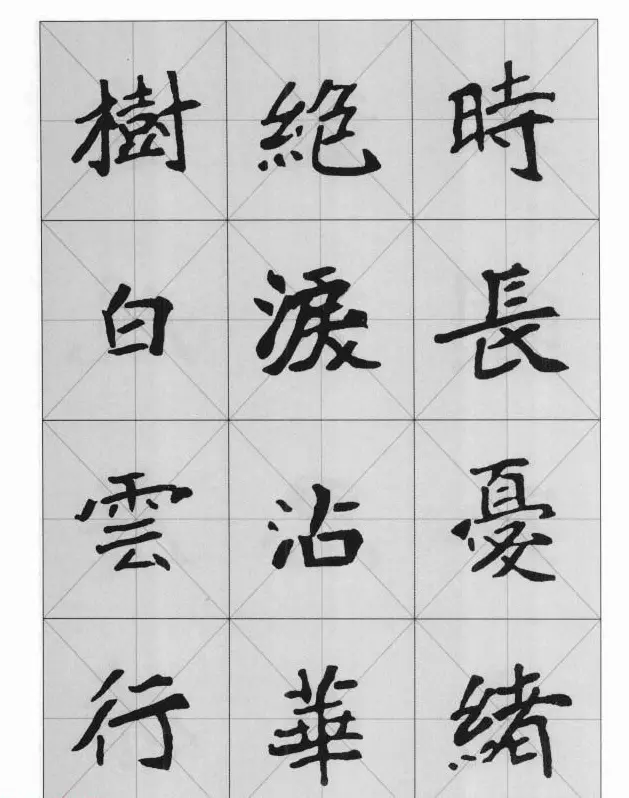 時長憂緒
絶淚沾華
樹白雲行